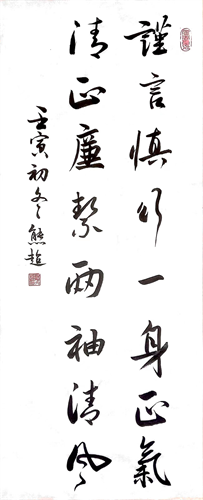 謹言慎行一身正氣
清正廉絜兩袖清風
壬寅初冬熊超